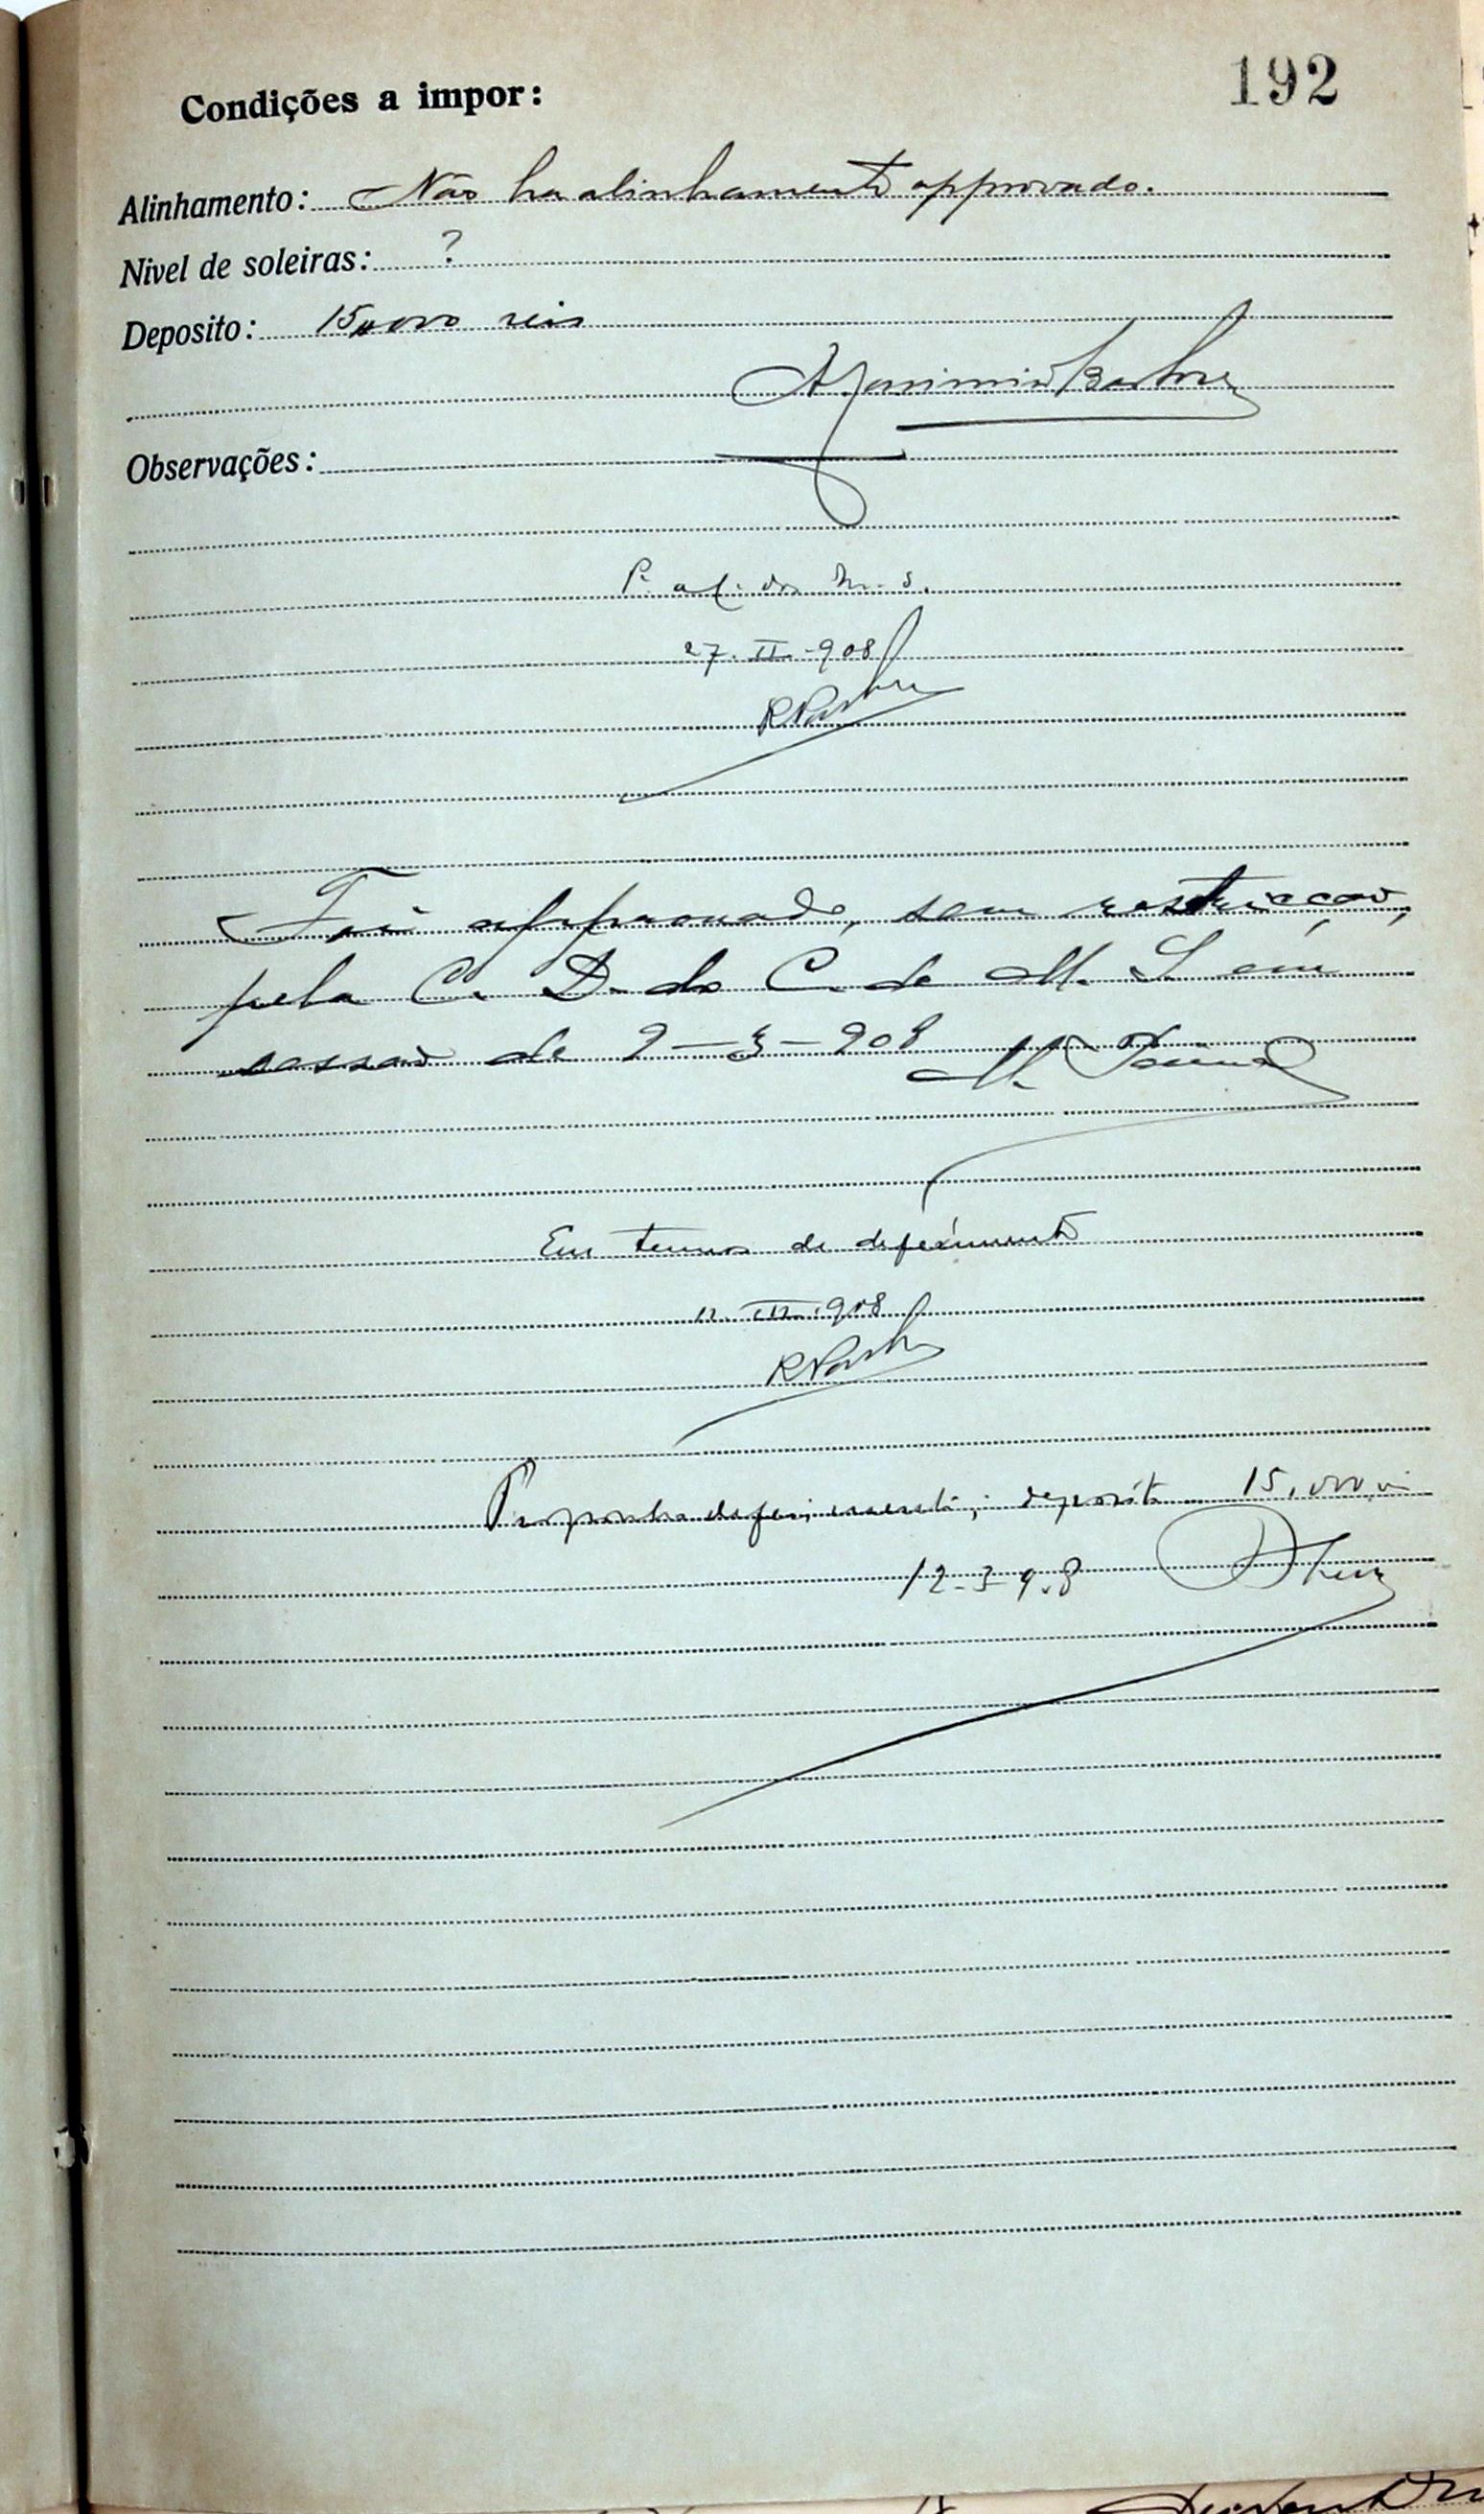 192
Condições a impor:
Alinhamento: Não ha alinhamento approvado.
Nivel de soleiras: ?
Deposito: 15,000 reis
Observações:
27-II-908
Foi approvado, sem restricção,
pela C. D. do C. de M. S. em
sessão de 9-3-908
Em termos de deferimento
908
Proponho deferimento; deposito 15,000
12-3-908